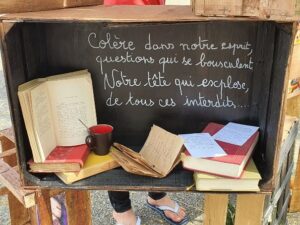 Colère dans notre esprit,
questions qui se bousculent
Notre tête qui explose,
de tous ces interdits....